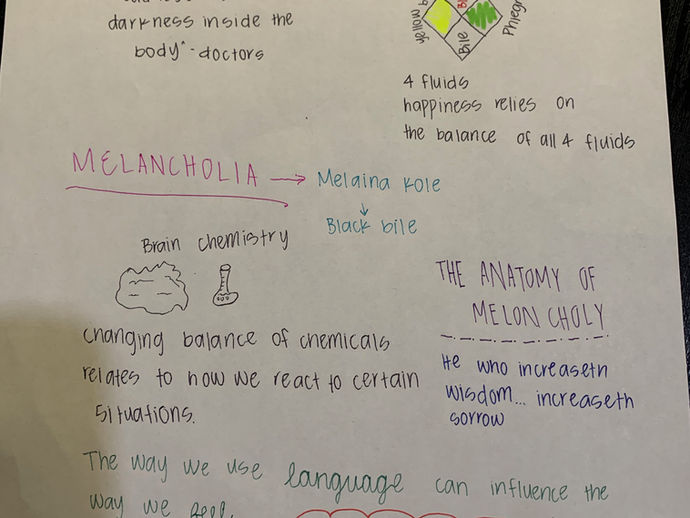 darkness inside the
body" - doctors
yellow b
Bile
Phleg
4 fluids
happiness relies on
the balance of all 4 fluids
MELANCHOLIA → Melaina Kole
↓
Black bile
Brain chemistry
THE ANATOMY OF
MELON CHOLY
changing balance of chemicals
relates to how we react to certain
situations.
He who increaseth
wisdom... increaseth
sorrow
The way we use language can influence the
way we feel.